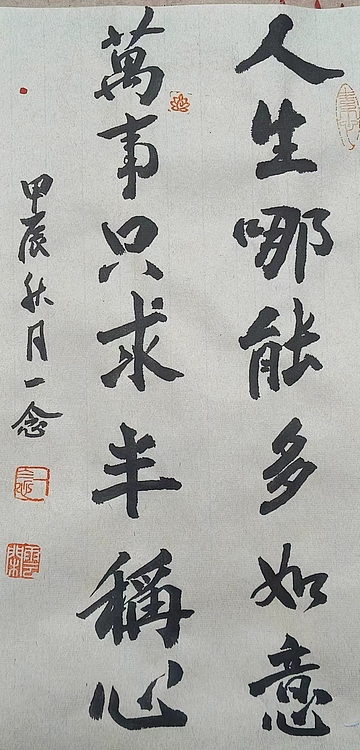 人生哪能多如意
萬事只求半稱心
甲辰秋月一念